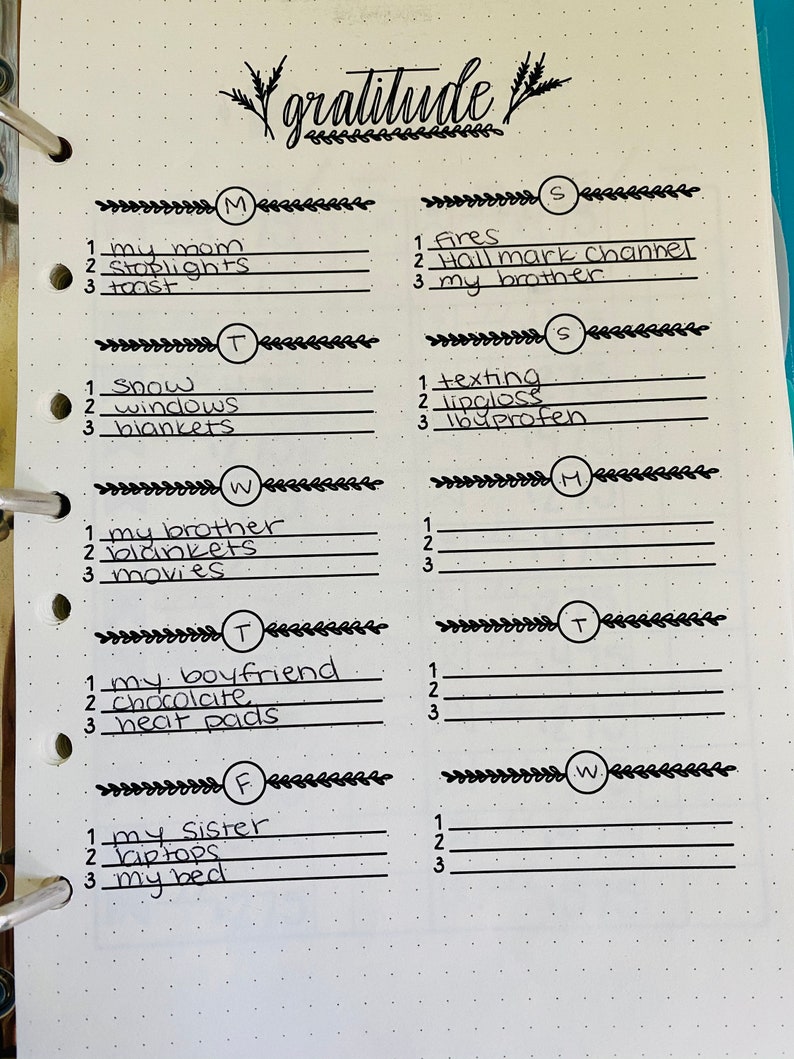 gratitude
M
1 my mom
2 stoplights
3 toast
T
1 snow
2 windows
3 blankets
W
1 my brother
2 blankets
3 movies
T
1 my boyfriend
2 chocolate
3 heat pads
F
1 my sister
2 laptops
3 my bed
S
1 fires
2 Hallmark channel
3 my brother
S
1 texting
2 lipgloss
3 Ibuprofen
M
1
2
3
T
1
2
3
W
1
2
3